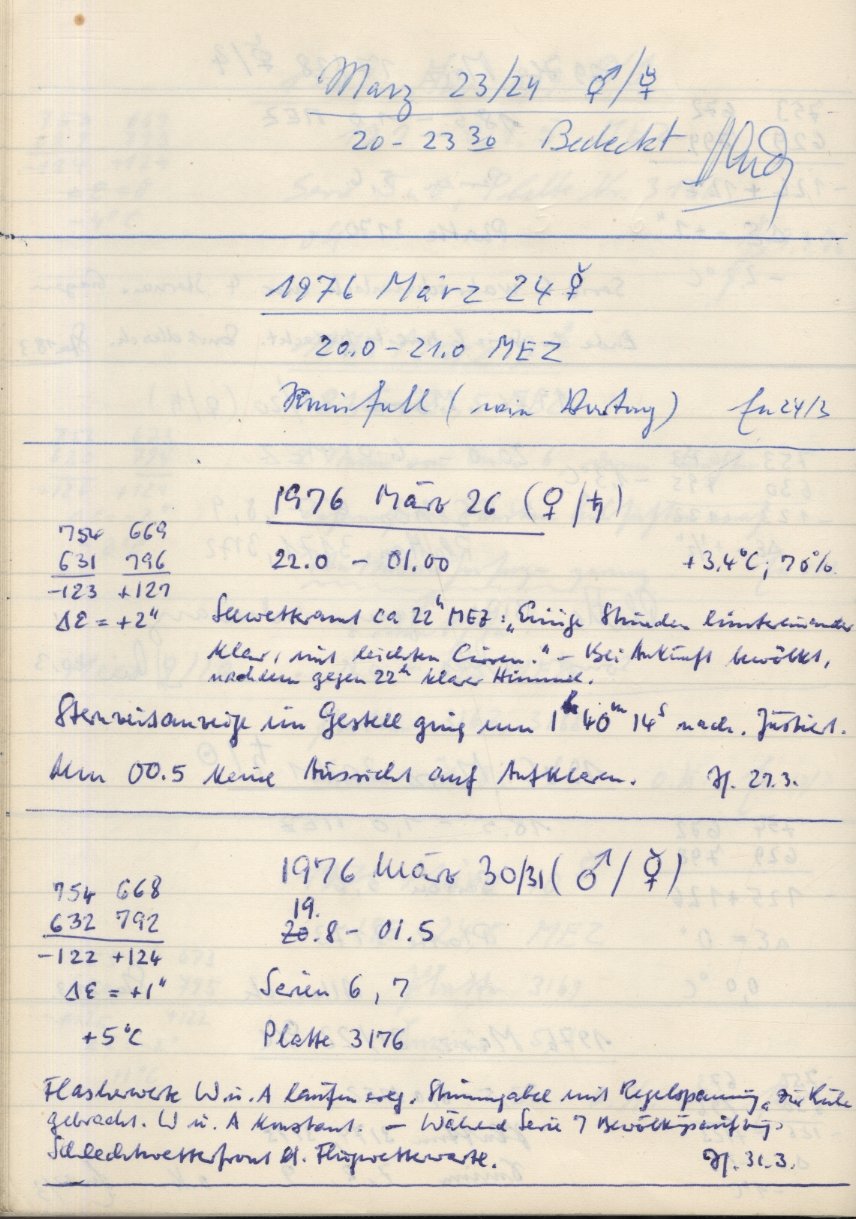 März 23/24 ♂/☿
20 - 23 30 Bedeckt
1976 März 24 ☿
20.0 - 21.0 MEZ
(rein Vortrag) 24/3
1976 März 26 (♀/♄)
754 669
631 796
22.0 - 01.00
+3.4°C, 70%
-123 +127
ΔE = +2"
Seewetteramt ca 22h MEZ: „Einige Stunden hintereinander
klar, mit leichten Cirren." - Bei Ankunft bewölkt,
nachdem gegen 22h klarer Himmel.
Sternzeitanzeige im Gestell ging um 1h 40m 14s nach. Justiert.
Um 00.5 keine Aussicht auf Aufklaren. 27.3.
1976 März 30/31 (♂/☿)
754 668
632 792
19.
20.8 - 01.5
-122 +124
ΔE = +1"
Serien 6, 7
+5°C
Platte 3176
W u. A laufen Stimmgabel mit Regelspannung zur Ruhe
gebracht. W u. A konstant. - Während Serie 7
Schlechtwetterfront lt. Flugwetterwarte. 31.3.